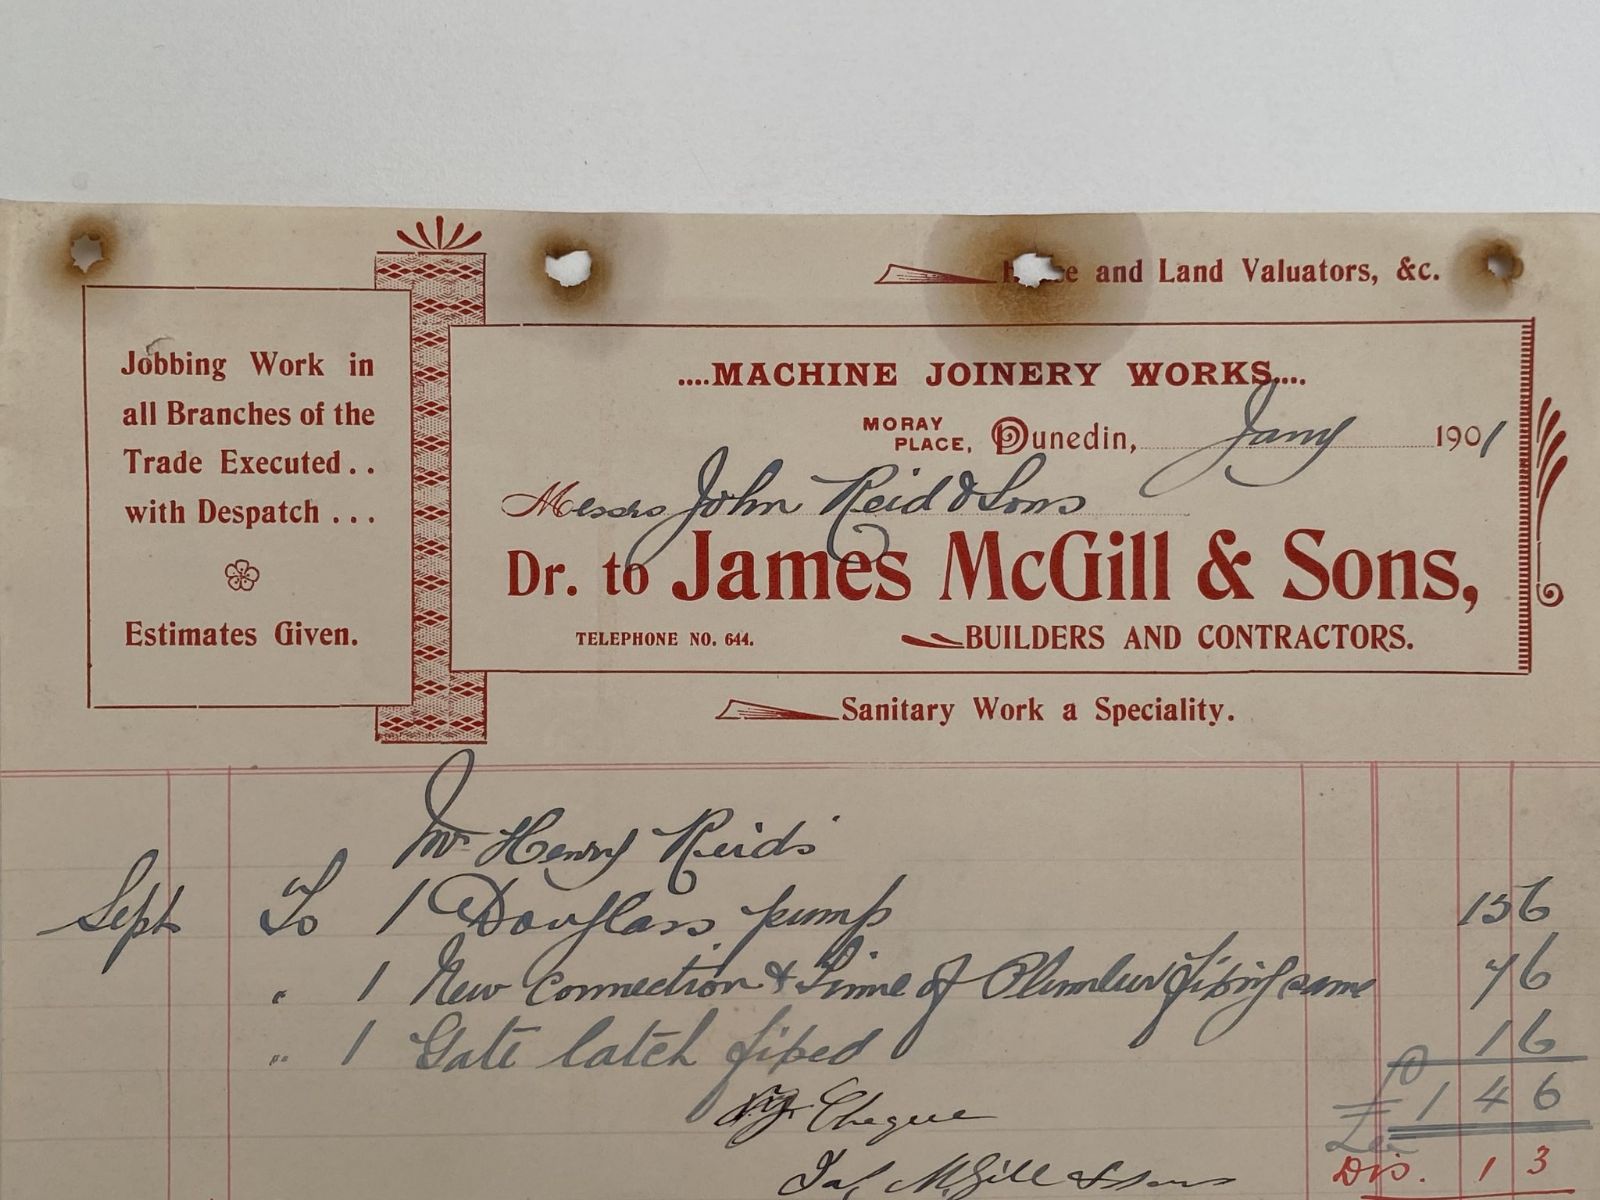 and Land Valuators, &c.
Jobbing Work in
all Branches of the
Trade Executed . .
with Despatch . . .
Estimates Given.
....MACHINE JOINERY WORKS....
MORAY PLACE, Dunedin, Jany 1901
Messrs John Reid & Sons
Dr. to James McGill & Sons,
TELEPHONE NO. 644. BUILDERS AND CONTRACTORS.
Sanitary Work a Speciality.
Mr Henry Reid's
Sept To 1 Douglass pump 15 6
" 1 New Connection & Time of Plumber fixing same 7 6
" 1 Gate latch fixed 1 6
£ 1 4 6
By Cheque
Dis. 1 3
Jas McGill & Sons